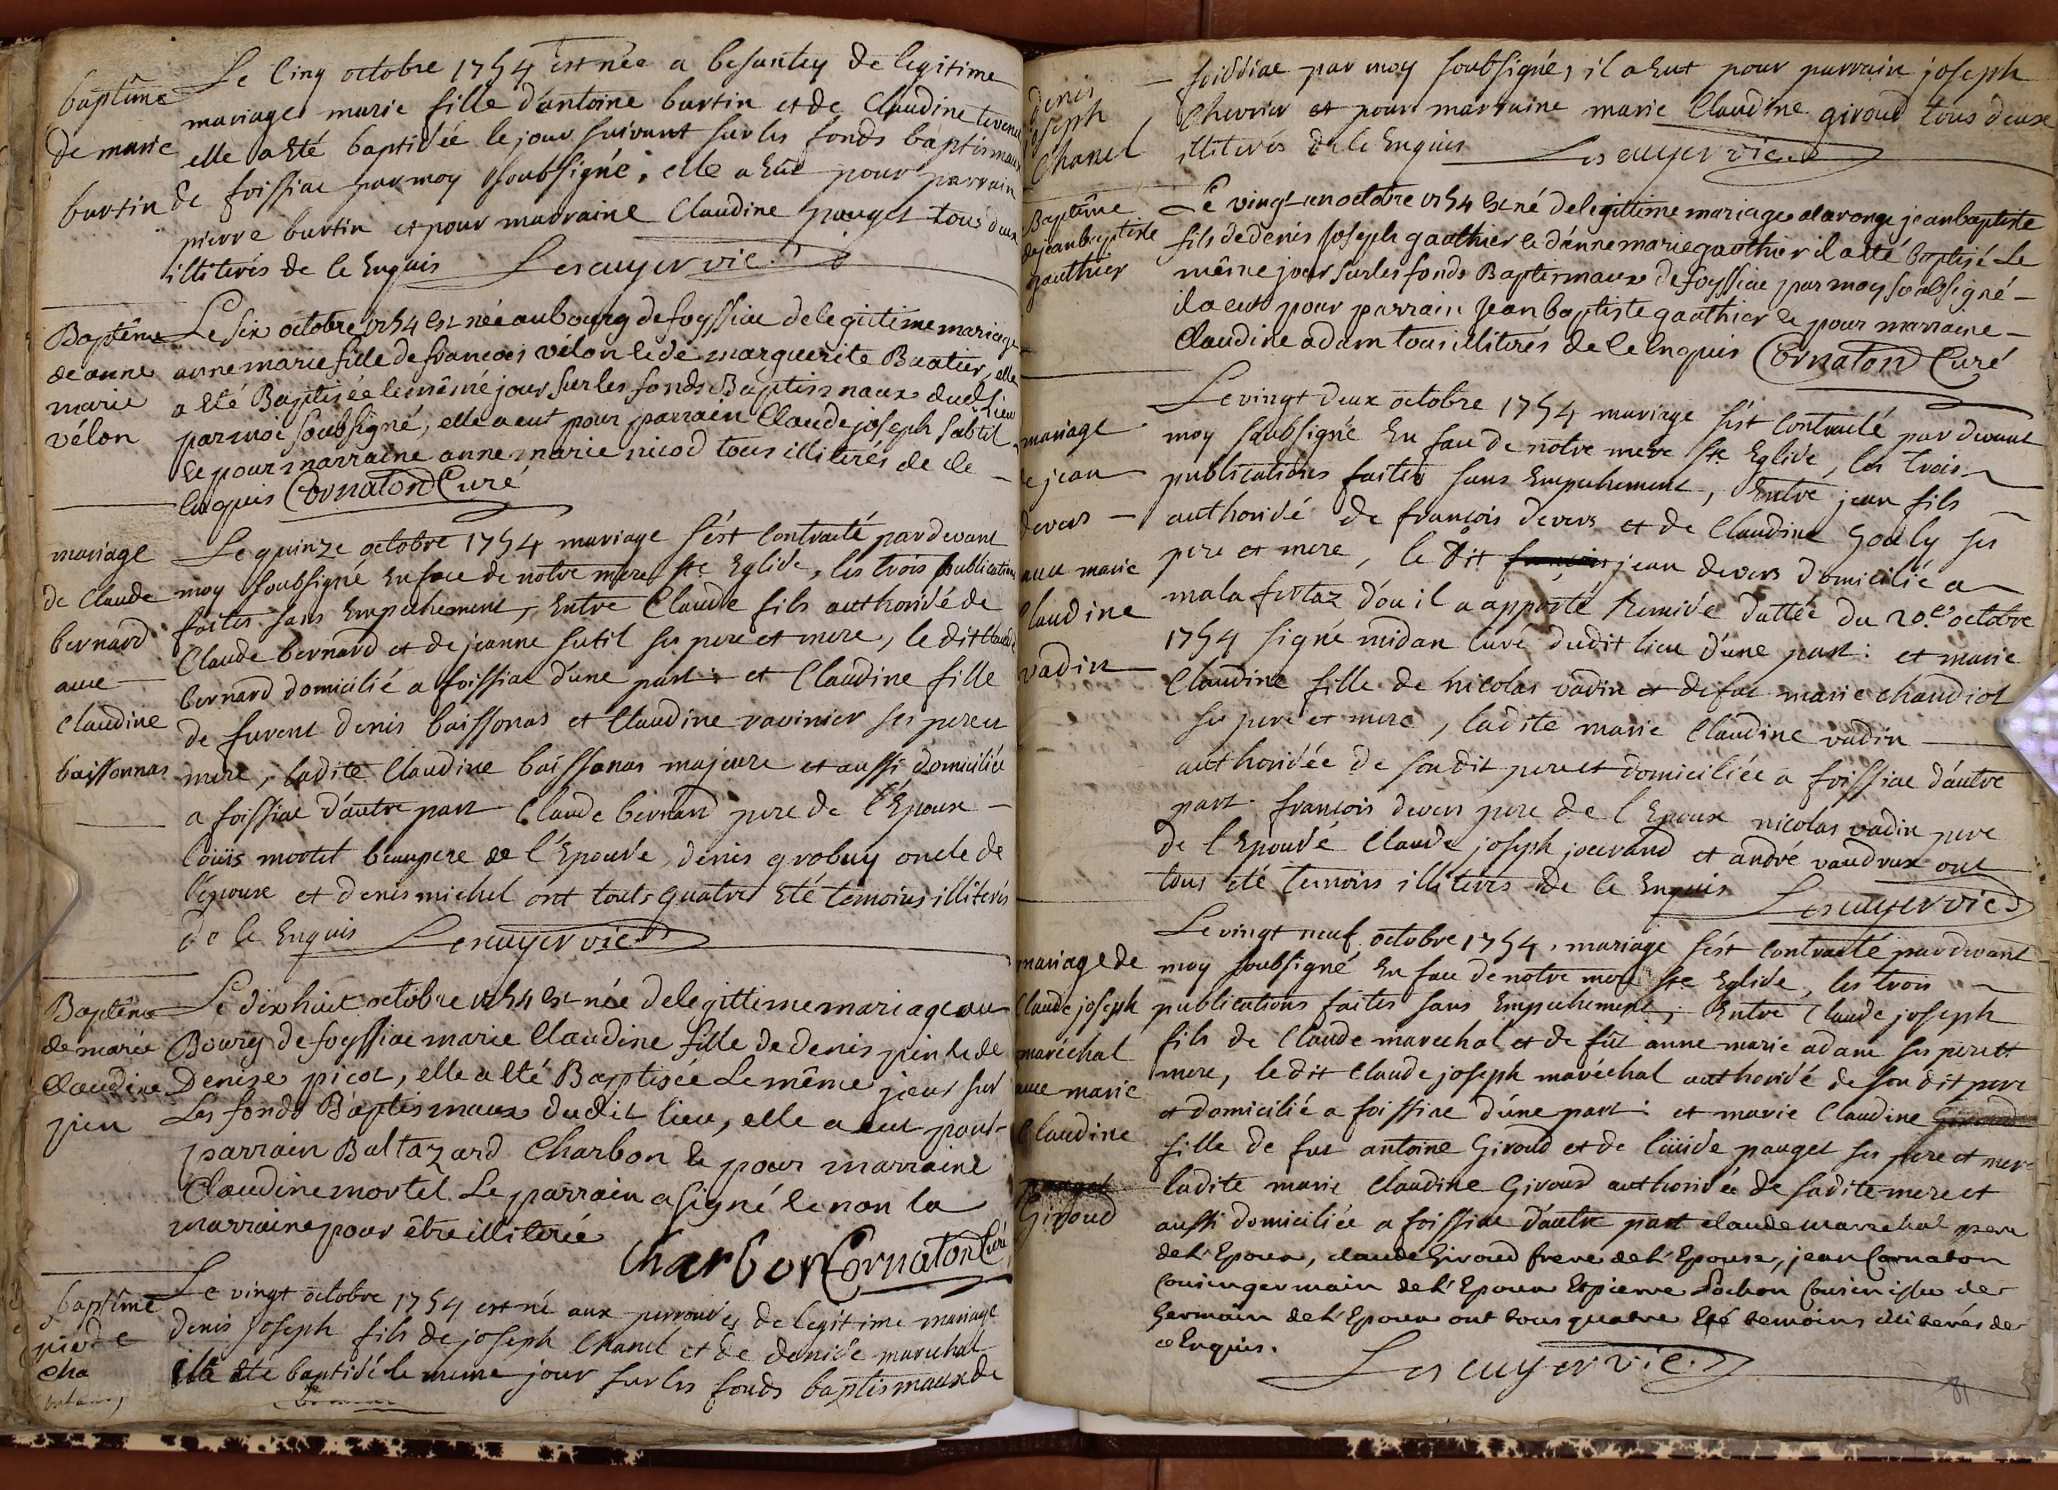 baptême
de marie
burtin
Le Cinq octobre 1754 est née a besantey de legitime
mariage marie fille d'antoine burtin et de Claudine tevenet
elle a Eté baptisée le jour suivant sur les fonds baptismaux
de foissiac par moy soubsigné, elle a Eut pour parrain
pierre burtin et pour marraine Claudine pauget tous deux
illiterés de ce Enquis Lescuyer vic.
Baptême
de anne
marie
vélon
Le six octobre 1754 Est née au bourg de foyssiac de legittime mariage
anne marie fille de francois vélon & de marguerite Buatier, elle
a Eté Baptisée le même jour sur les fonds Baptismaux dudt lieu
par moi soubsigné, elle a eut pour parrain Claude joseph Sabtil
& pour marraine anne marie nicod tous illiterés de ce
Enquis Cornaton Curé
mariage
de Claude
bernard
avec
Claudine
baissonnas
Le quinze octobre 1754 mariage s'est Contracté pardevant
moy soubsigné En face de notre mere ste Eglise, les trois publications
faites sans Empechement, Entre Claude fils authorisé de
Claude bernard et de jeanne Sutil ses pere et mere, le dit Claude
bernard domicilié a foissiac d'une part : et Claudine fille
de furent denis baissonas et Claudine ravinier ses pere et
mere, ladite Claudine baissonas majeure et aussi domiciliée
a foissiac d'autre part Claude bernard pere de l'Epoux
Loüis mortel beaupere de l'Epouse, denis grobuy oncle de
l'epoux et denis michel ont touts quatre Eté temoins illiterés
de ce Enquis Lescuyer vic.
Baptême
de marie
Claudine
pin
Le dixhuit octobre 1754 Est née de legittime mariage au
Bourg de foyssiac marie Claudine fille de denis pin & de
Denize picot, elle a Eté Baptisée Le même jour sur
Les fonds Baptismaux dudit lieu, elle a eut pour
parrain Baltazard Charbon & pour marraine
Claudine mortel Le parrain a signé & non la
marraine pour être illiterée
Charbon Cornaton Curé
baptême
Le vingt octobre 1754 est né aux perrouses de legitime mariage
denis joseph fils de joseph Chanel et de denise marechal
il a Eté baptisé le meme jour sur les fonds baptismaux de
denis
joseph
Chanel
foissiac par moy soubsigné, il a Eut pour parrain joseph
Chevrier et pour marraine marie Claudine giroud tous deux
illiterés de ce Enquis Lescuyer vic.
Baptême
de jean baptiste
gauthier
Le vingt un octobre 1754 Est né de legittime mariage a laronge jean baptiste
fils de denis joseph gauthier & d'anne marie gauthier il a Eté baptisé Le
même jour sur les fonds Baptismaux de foyssiac par moy soubsigné
il a eut pour parrain jean baptiste gauthier & pour marraine
Claudine adam tous illiterés de ce Enquis Cornaton Curé
mariage
de jean
devers
avec marie
Claudine
vadin
Le vingt deux octobre 1754 mariage s'est Contracté pardevant
moy soubsigné En face de notre mere ste Eglise, les trois
publications faites sans Empechement, Entre jean fils
authorisé de françois devers et de Claudine Gouly ses
pere et mere, le dit françois jean devers domicilié a
malafretaz d'ou il a apporté Remise dattée du 20e octobre
1754 signé midan curé dudit lieu d'une part : et marie
Claudine fille de nicolas vadin et de fue marie chaudiot
ses pere et mere, ladite marie Claudine vadin
authorisée de sondit pere et domiciliée a foissiac d'autre
part françois devers pere de l'Epoux nicolas vadin pere
de l'Epouse Claude joseph joerand et andré vaudroux ont
tous eté temoins illiterés de ce Enquis Lescuyer vic.
mariage de
Claude joseph
maréchal
avec marie
Claudine
pauget
Giroud
Le vingt neuf octobre 1754, mariage s'est Contracté pardevant
moy soubsigné En face de notre mere ste Eglise, les trois
publications faites sans Empechement, Entre Claude joseph
fils de Claude marechal et de fût anne marie adam ses pere et
mere, le dit Claude joseph maréchal authorisé de son dit pere
et domicilié a foissiac d'une part : et marie Claudine Giroud
fille de fut antoine Giroud et de Loüise pauget ses pere et mere
ladite marie Claudine Giroud authorisée de sadite mere et
aussi domiciliée a foissiac d'autre part claude marechal pere
de l'Epoux, claude Giroud frere de l'Epouse, jean Cornaton
Cousin germain de l'Epoux Et pierre Sochon Cousin issu de
germain de l'Epoux ont tous quatre Eté temoins illiterés de
ce Enquis.
Lescuyer vic.
81